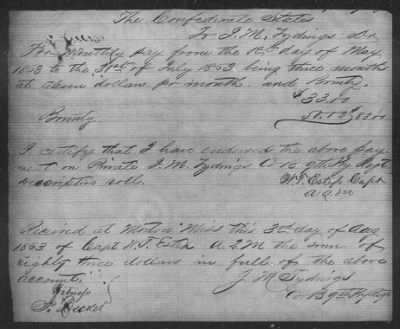 The Confederate States
To J. M. Tydings Dr
For Monthly pay from the 18th day of May
1863 to the 31st of July 1863 being three months
at eleven dollars per month and Bounty.
$33.00
Bounty 50.00 $83.00
I certify that I have endorsed the above pay
ment on Private J. M. Tydings Co B 9th Ky Regt
descriptive roll.
W. T. Estep Capt
A Q M
Received at Morton Miss this 3rd day of Aug
1863 of Capt W. T. Estep A Q M the sum of
eighty three dollars in full of the above
account.
J M Tydings
Co B 9th Ky
Witness
Becker